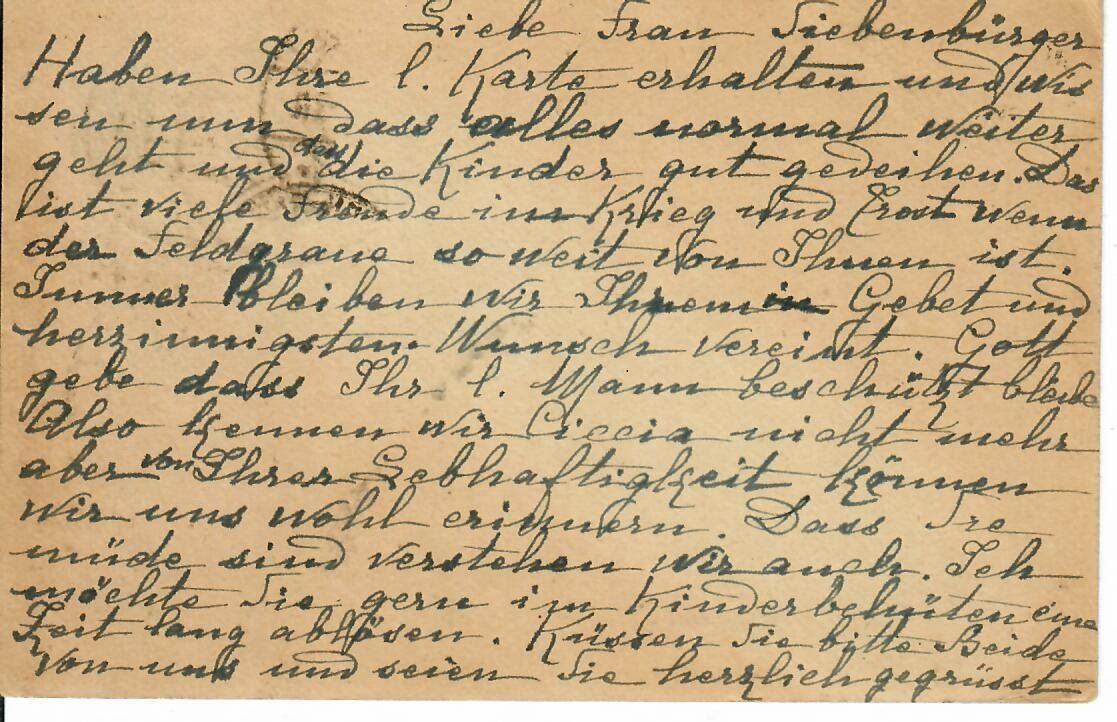 Liebe Frau Siebenbürger
Haben Ihre l. Karte erhalten und wis
sen nun dass alles normal weiter
geht und dass die Kinder gut gedeihen. Das
ist viele Freude im Krieg und Trost wenn
der Feldgraue so weit von Ihnen ist.
Immer bleiben wir Ihnen in Gebet und
herzinnigsten Wunsch vereint. Gott
gebe dass Ihr l. Mann beschützt bleibe
Also kennen wir Ciccia nicht mehr
aber von Ihrer Lebhaftigkeit können
wir uns wohl erinnern. Dass Sie
müde sind verstehen wir auch. Ich
möchte Sie gern im Kinderbehüten eine
Zeit lang ablösen. Küssen Sie bitte Beide
von uns und seien Sie herzlich gegrüsst